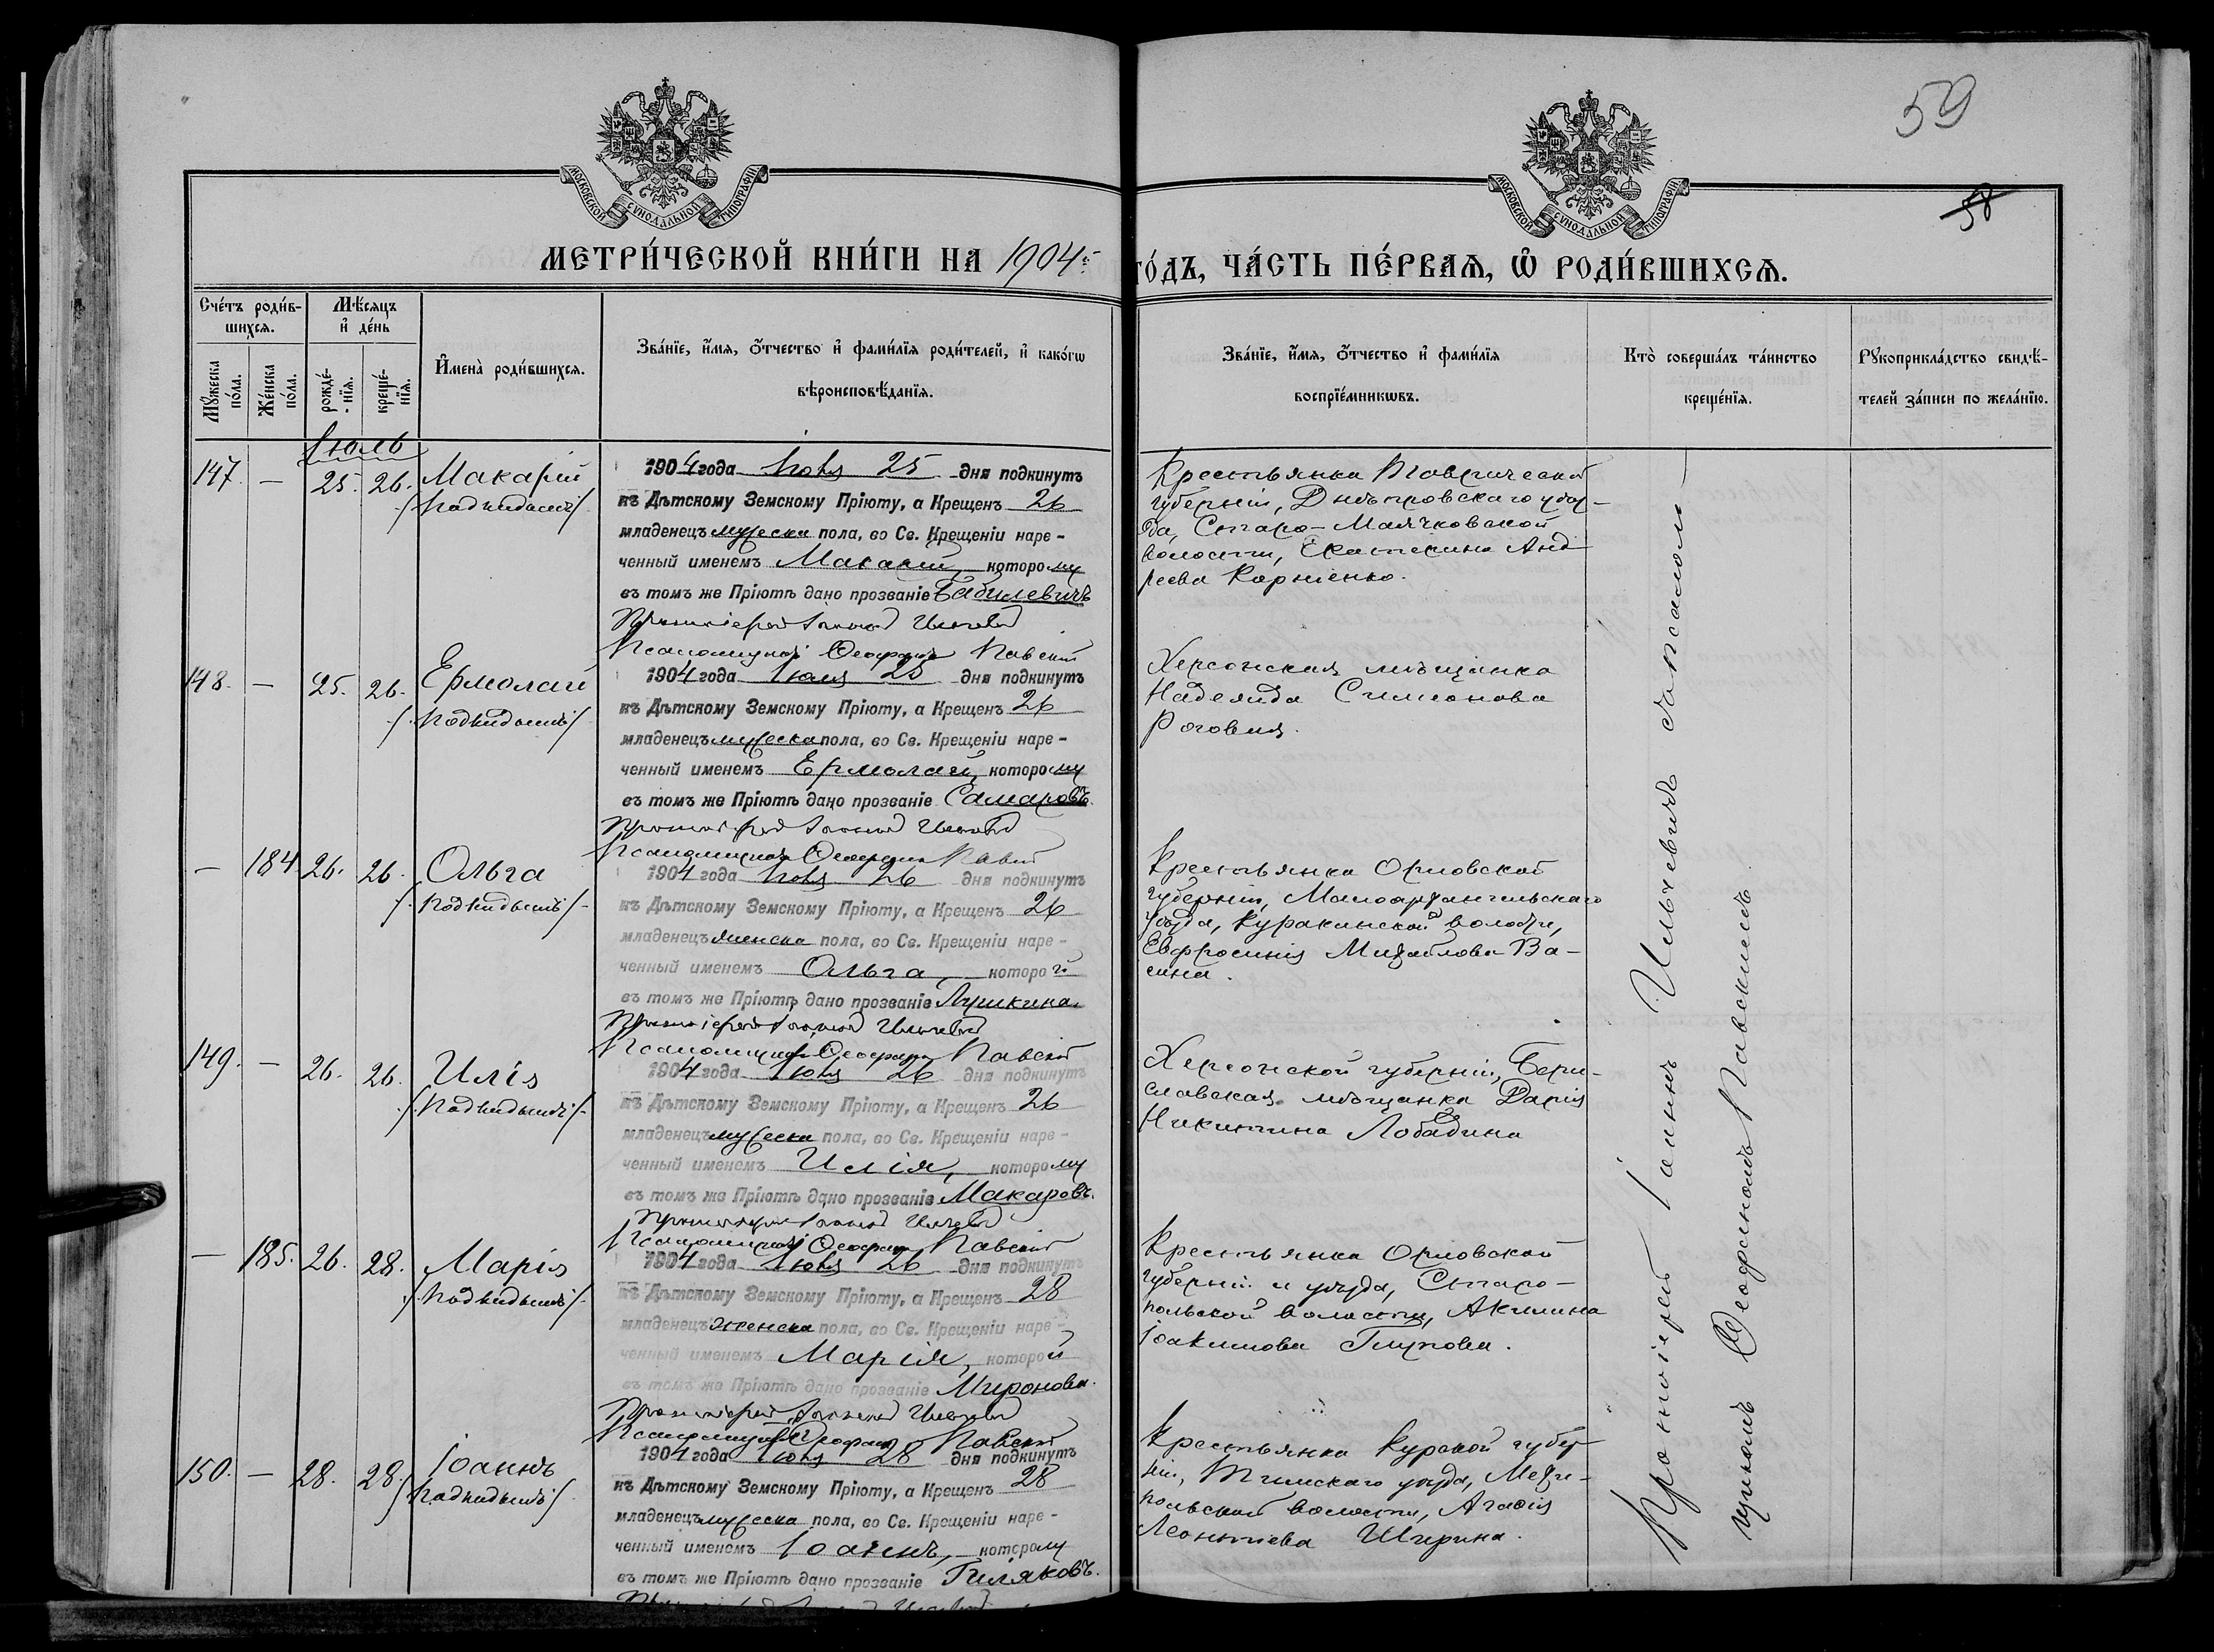 59
58
МОСКОВСКОЙ СѴНОДАЛЬНОЙ ТИПОГРАФІИ
МОСКОВСКОЙ СѴНОДАЛЬНОЙ ТИПОГРАФІИ
МЕТРИ́ЧЕСКОЙ КНИ́ГИ НА 1904й
ГО́ДЪ, ЧА́СТЬ ПЕ́РВАѦ, Ѡ҆ РОДИ́ВШИХСѦ.
Сче́тъ роди́вшихсѧ.
Мꙋ́жеска по́ла.
Же́нска по́ла.
Мѣ́сѧцъ и҆ де́нь
рожде́нїѧ.
креще́нїѧ.
И҆мена̀ роди́вшихсѧ.
Зва́нїе, и҆́мѧ, ѻ҆́тчество и҆ фами́лїѧ роди́телей, и҆ како́гѡ
вѣроисповѣ́данїѧ.
Зва́нїе, и҆́мѧ, ѻ҆́тчество и҆ фами́лїѧ
воспрїе́мникѡвъ.
Кто̀ соверша́лъ та́инство
креще́нїѧ.
Рꙋкоприкла́дство свидѣ́телей за́писи по жела́нїю.
Іюль
147. — 25. 26. Макарій
/Подкидышъ/
1904 года Іюля 25 дня подкинутъ
къ Дѣтскому Земскому Пріюту, а Крещенъ 26
младенецъ мужеска пола, во Св. Крещеніи наре-
ченный именемъ Макарій, которому
въ томъ же Пріютѣ дано прозваніе Бабилевичъ
Протоіерей Іоаннъ Ильчевичъ
Псаломщикъ Ѳеофанъ Павскій
Крестьянка Таврической
губерніи, Днѣпровскаго уѣз-
да, Старо-Маячковской
волости, Екатерина Анд
реева Корніенко.
148. — 25. 26. Ермолай
/Подкидышъ/
1904 года Іюля 25 дня подкинутъ
къ Дѣтскому Земскому Пріюту, а Крещенъ 26
младенецъ мужеска пола, во Св. Крещеніи наре-
ченный именемъ Ермолай, которому
въ томъ же Пріютѣ дано прозваніе Самаровъ.
Протоіерей Іоаннъ Ильчевичъ
Псаломщикъ Ѳеофанъ Павскій
Херсонская мѣщанка
Надежда Симеонова
Роговая.
— 184. 26. 26. Ольга
/Подкидышъ/
1904 года Іюля 26 дня подкинутъ
къ Дѣтскому Земскому Пріюту, а Крещенъ 26
младенецъ женска пола, во Св. Крещеніи наре-
ченный именемъ Ольга, которой
въ томъ же Пріютѣ дано прозваніе Лушкина.
Протоіерей Іоаннъ Ильчевичъ
Псаломщикъ Ѳеофанъ Павскій
Крестьянка Орловской
губерніи, Малоархангельскаго
уѣзда, Куракинской волости,
Евфросинія Михайлова Ва-
сина.
149. — 26. 26. Илія
/Подкидышъ/
1904 года Іюля 26 дня подкинутъ
къ Дѣтскому Земскому Пріюту, а Крещенъ 26
младенецъ мужеска пола, во Св. Крещеніи наре-
ченный именемъ Илія, которому
въ томъ же Пріютѣ дано прозваніе Макаровъ.
Протоіерей Іоаннъ Ильчевичъ
Псаломщикъ Ѳеофанъ Павскій
Херсонской губерніи, Бери-
славская мѣщанка Дарія
Никитина Лободина
— 185. 26. 28. Марія
/Подкидышъ/
1904 года Іюля 26 дня подкинутъ
къ Дѣтскому Земскому Пріюту, а Крещенъ 28
младенецъ женска пола, во Св. Крещеніи наре-
ченный именемъ Марія, которой
въ томъ же Пріютѣ дано прозваніе Миронова.
Протоіерей Іоаннъ Ильчевичъ
Псаломщикъ Ѳеофанъ Павскій
Крестьянка Орловской
губерніи и уѣзда, Старо-
польской волости, Акилина
Іоакимова Глухова.
150. — 28. 28. Іоаннъ
/Подкидышъ/
1904 года Іюля 28 дня подкинутъ
къ Дѣтскому Земскому Пріюту, а Крещенъ 28
младенецъ мужеска пола, во Св. Крещеніи наре-
ченный именемъ Іоаннъ, которому
въ томъ же Пріютѣ дано прозваніе Гиляковъ.
Крестьянка Курской губер-
ніи, Тимскаго уѣзда,
польской волости, Агафія
Леонтіева Ширина.
Протоіерей Іоаннъ Ильчевичъ съ псаломщикомъ Ѳеофаномъ Павскимъ.